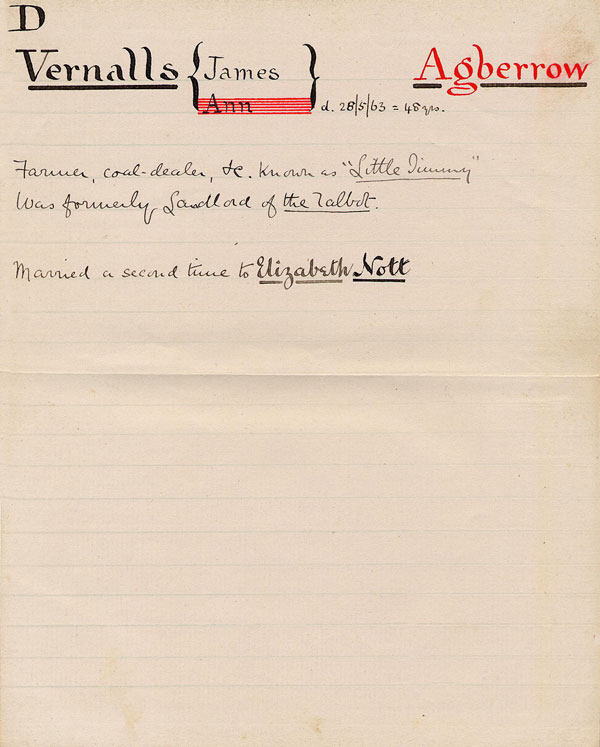 D
Vernalls { James } Agberrow
Ann d. 28/5/63 = 48 yrs.
Farmer, coal-dealer, &c. Known as "Little Jimmy"
Was formerly Landlord of the Talbot.
Married a second time to Elizabeth Nott